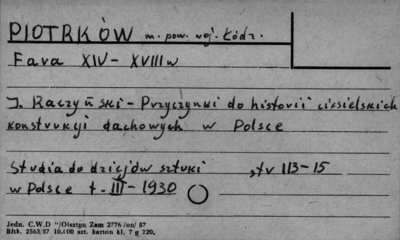 PIOTRKÓW m. pow. woj. Łódz.
Fara XIV - XVIII w
J. Raczyński - Przyczynki do historii ciesielskich
konstrukcji dachowych w Polsce
Studia do dziejów sztuki , str 113-15
w Polsce t. III - 1930
Jedn. C.W.D "/Olsztyn Zam 2776/on/57
Błtk. 2563/57 10.000 szt. karton kl. 7 g 220,